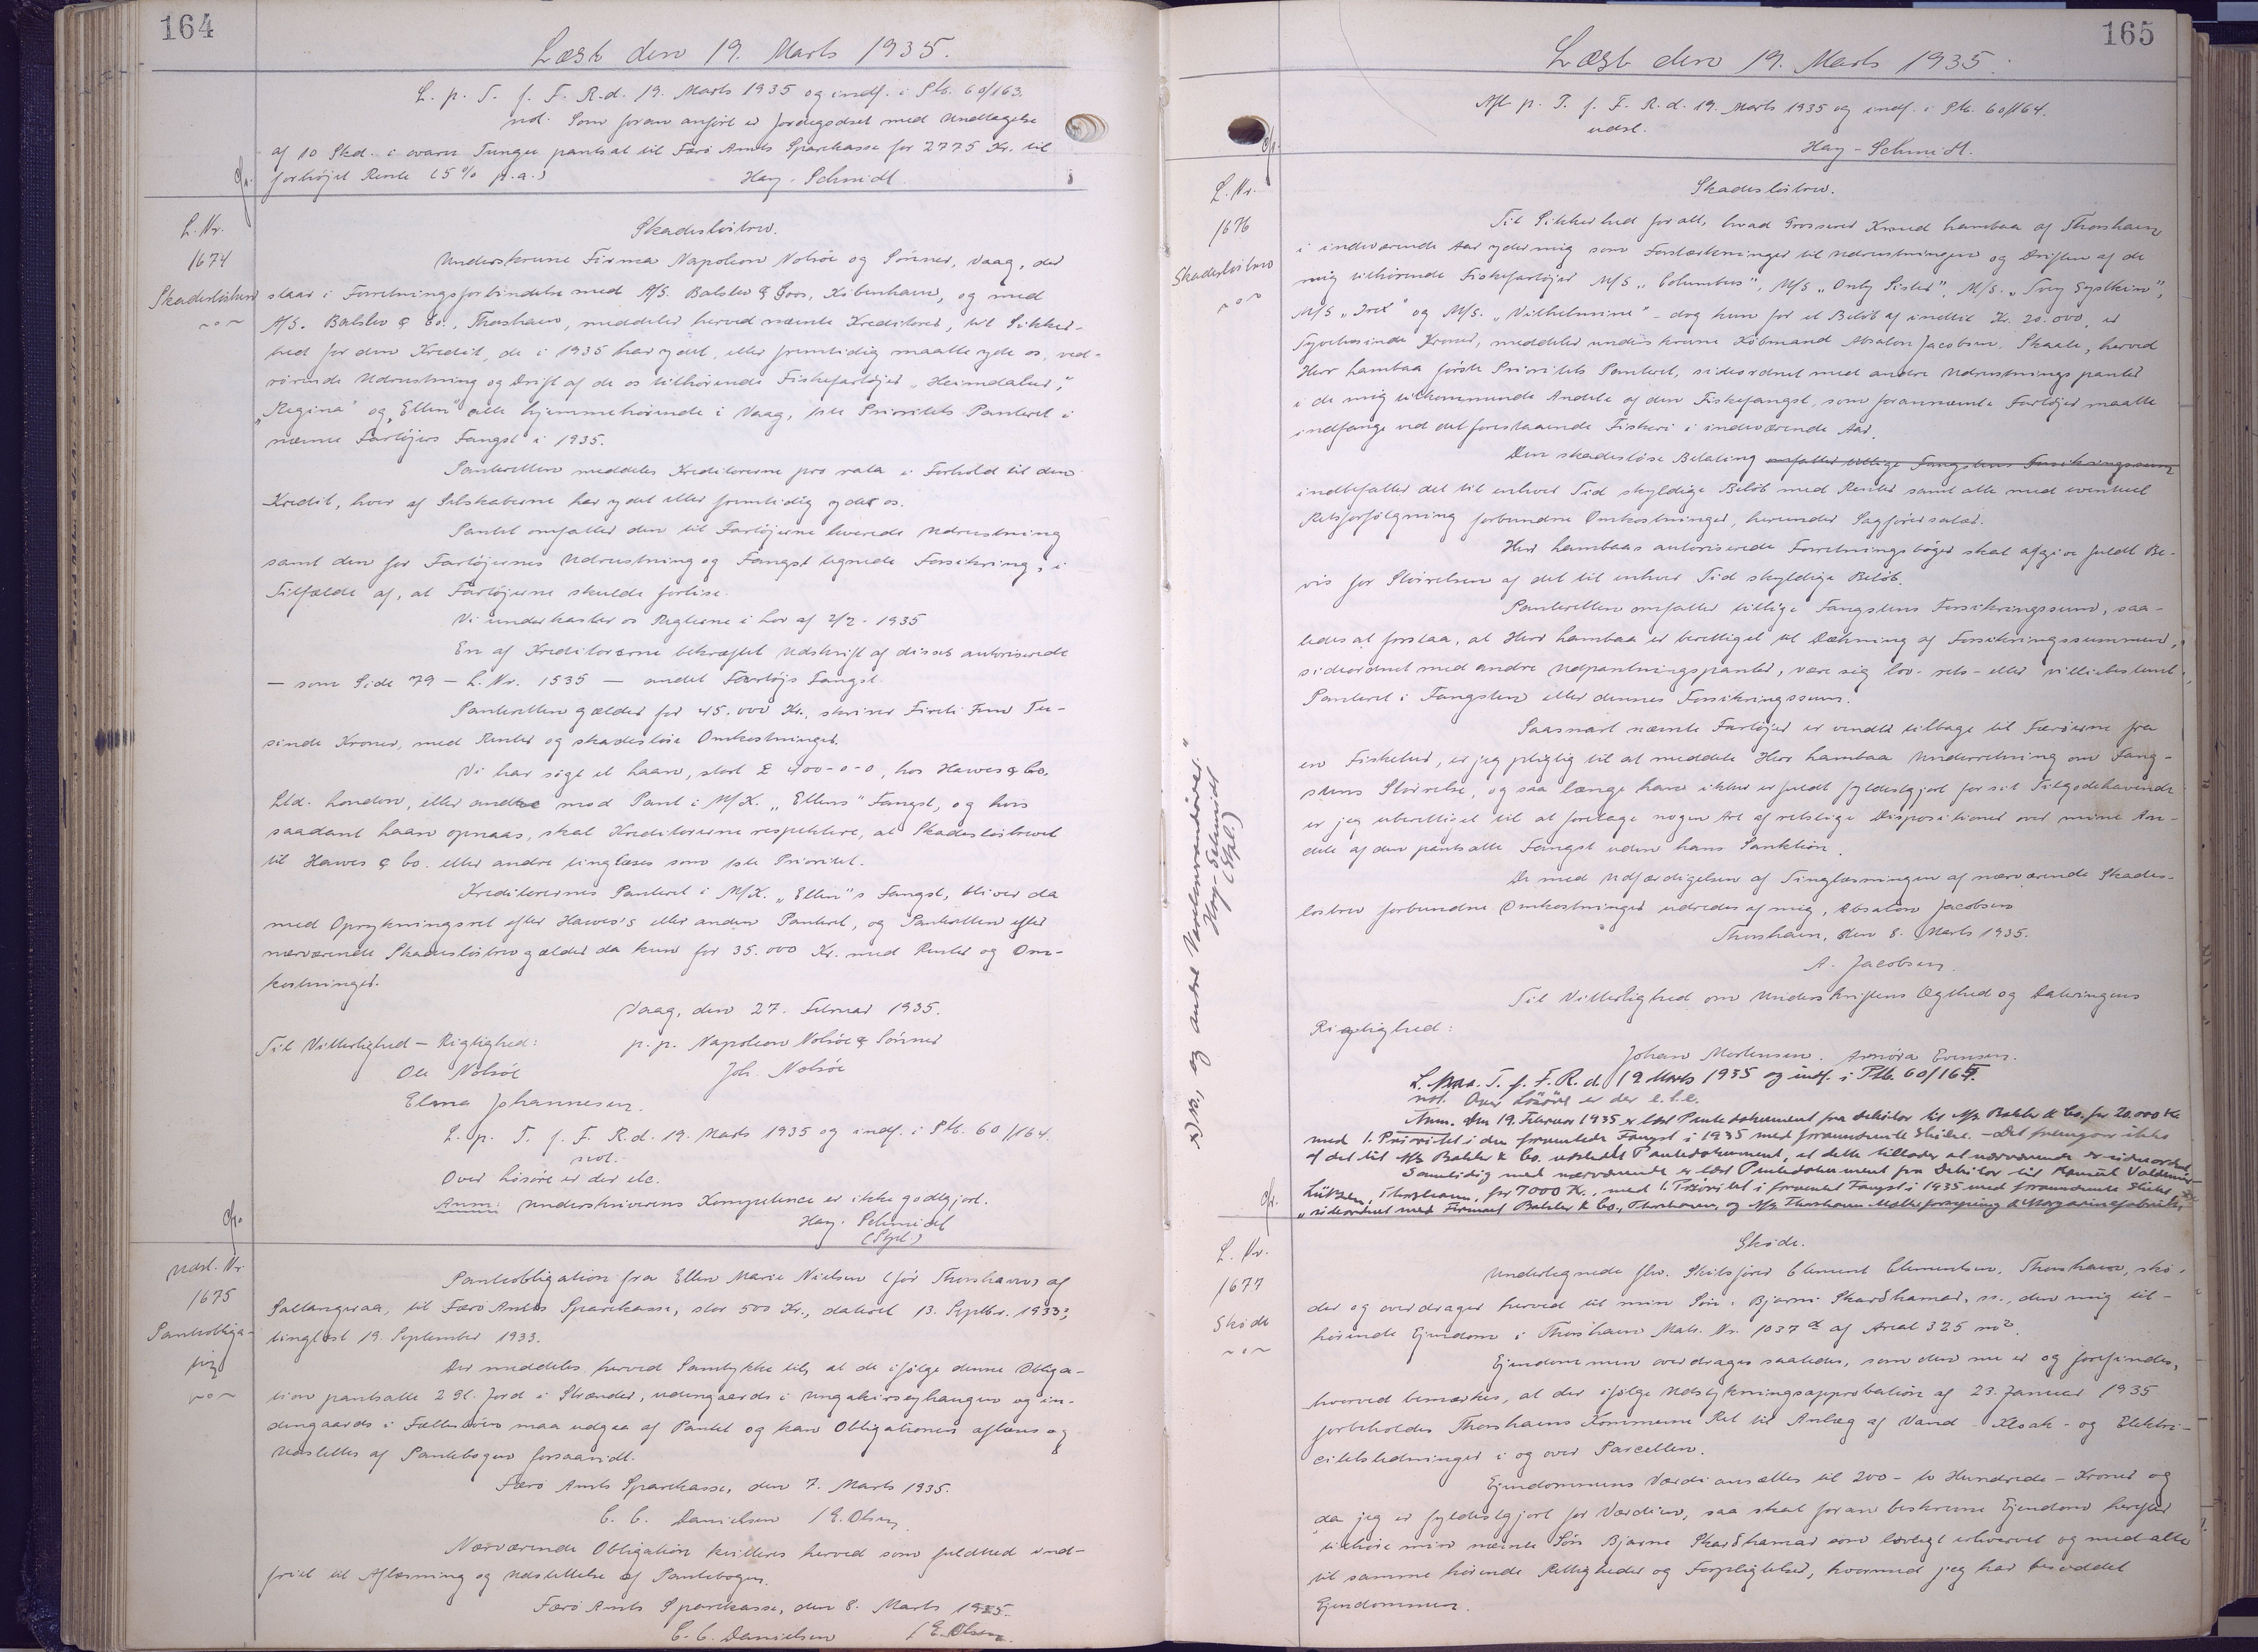 164
Læst den 19. Marts 1935.
L. p. T. f. F. R. d. 19. Marts 1935 og indf. i Ptb. 60/163.
not. Som foran anført er Jordegodset med Undtagelse
af 10 Skd. i ovaru Tungu pantsat til Færø Amts Sparekasse for 2775 Kr. til
forhøjet Rente (5% p.a.) Hay-Schmidt.
L. Nr.
1674
Skadesløsbrev
Skadesløsbrev.
Underskrevne Firma Napoleon Nolsöe og Sönner, Vaag, der
staar i Forretningsforbindelse med A/S. Balslev & Goos, Köbenhavn, og med
A/S. Bahslev & Co., Thorshavn, meddeler herved nævnte Kreditorer, til Sikker-
hed for den Kredit, de i 1935 har ydet, eller fremtidig maatte yde os, ved-
rörende Udrustning og Drift af de os tilhörende Fiskefartöjer „Heimdalur",
„Regina" og „Ellen" alle hjemmehörende i Vaag, 1ste Prioritets Panteret i
nævnte Fartöjers Fangst i 1935.
Panteretten meddeles Kreditorerne pro rata i Forhold til den
Kredit, hver af Selskaberne har ydet eller fremtidig yder os.
Pantet omfatter den til Fartöjerne leverede Udrustning
samt den for Fartöjernes Udrustning og Fangst tegnede Forsikring, i
Tilfælde af, at Fartöjerne skulde forlise.
Vi underkaster os Reglerne i Lov af 2/2 - 1935
En af Kreditorerne bekræftet Udskrift af disses autoriserede
— som Side 79 — L. Nr. 1535 — andet Fartöjs Fangst.
Panteretten gælder for 45.000 Kr., skriver Fireti Fem Tu-
sinde Kroner, med Renter og skadeslöse Omkostninger.
Vi har søgt et Laan, stort £ 400-0-0, hos Hawes & Co.
Ltd. London, eller andre mod Pant i M/K. „Ellens" Fangst, og hvis
saadant Laan opnaas, skal Kreditorerne respektere, at Skadeslösbrevet
til Hawes & Co. eller andre tinglæses som 1ste Prioritet.
Kreditorernes Panteret i M/K. „Ellen"s Fangst, bliver da
med Oprykningsret efter Hawes's eller anden Panteret, og Panteretten efter
nærværende Skadeslösbrev gælder da kun for 35.000 Kr. med Renter og Om-
kostninger.
Vaag, den 27. Februar 1935.
Til Vitterlighed — Rigtighed: p.p. Napoleon Nolsöe & Sönner
Ole Nolsöe Joh. Nolsöe
Elena Johannesen.
L. p. T. f. F. R. d. 19. Marts 1935 og indf. i Ptb. 60/164.
not.
Over Lösöre er der etc.
Anm: Underskriverens Kompetence er ikke godtgjort.
Hay-Schmidt
(Stpl.)
Udsl. Nr.
1675
Pantobliga-
tion
Panteobligation fra Ellen Marie Nielsen (för Thorshavn) af
Saltangeraa, til Færö Amts Sparekasse, stor 500 Kr., dateret 13. Septbr. 1933,
tinglæst 19. September 1933.
Der meddeles herved Samtykke til, at de ifölge denne Obliga-
tion pantsatte 2 Gl. Jord i Strænder, udengaards i Ungakirseyhaugen og in-
dengaards i maa udgaa af Pantet og kan Obligationen aflæses og
udslettes af Pantebogen forsaavidt.
Færö Amts Sparekasse, den 7. Marts 1935.
C. C. Danielsen / E. Olsen
Nærværende Obligation kvitteres herved som fuldtud ind-
friet til Aflæsning og Udslettelse af Pantebogen.
Færö Amts Sparekasse, den 8. Marts 1935.
C. C. Danielsen / E. Olsen.
165
Læst den 19. Marts 1935.
Afl. p. T. f. F. R. d. 19. Marts 1935 og indf. i Ptb. 60/164.
udsl.
Hay-Schmidt.
L. Nr.
1676
Skadeslösbrev
Skadeslösbrev.
Til Sikkerhed for alt, hvad Grosserer Knud Lambaa af Thorshavn
i indeværende Aar yder mig som Forstærkninger til Udrustningen og Driften af de
mig tilhörende Fiskefartöjer M/S „Columbus", M/S „Only Sister", M/S. „Trey Systkin",
M/S „Irex" og M/S. „Vilhelmine" - dog kun for et Belöb af indtil Kr. 20.000, er
Tyvetusinde Kroner, meddeler underskrevne Köbmand Absalon Jacobsen, Skaale, herved
Herr Lambaa förste Prioritets Panteret, sideordnet med andre Udrustningspanter
i de mig tilkommende Andele af den Fiskefangst, som forannævnte Fartöjer maatte
indfange ved det forestaaende Fiskeri i indeværende Aar.
Den skadeslöse Betaling omfatter tillige Fangstens Forsikringssum
indbefatter det til enhver Tid skyldige Belöb med Renter samt alle med eventuel
Retsforfölgning forbundne Omkostninger, herunder Sagförersalær.
Herr Lambaas autoriserede Forretningsböger skal afgive fuldt Be-
vis for Störrelsen af det til enhver Tid skyldige Belöb.
Panteretten omfatter tillige Fangstens Forsikringssum, saa-
ledes at forstaa, at Herr Lambaa er berettiget til Dækning af Forsikringssummen,
sideordnet med andre Udpantningspanter, være sig lov- rets- eller villiebestemt
Panteret i Fangsten eller dennes Forsikringssum.
Saasnart nævnte Fartöjer er vendt tilbage til Færöerne fra
en Fisketur, er jeg pligtig til at meddele Herr Lambaa Underretning om Fang-
stens Störrelse, og saa længe han ikke er fuldt fyldestgjort for sit Tilgodehavende
er jeg uberettiget til at foretage nogen Art af retslige Dispositioner over mine An-
dele af den pantsatte Fangst uden hans Sanktion.
De med Udfærdigelsen af Tinglæsningen af nærværende Skades-
løsbrev forbundne Omkostninger udredes af mig, Absalon Jacobsen
Thorshavn, den 8. Marts 1935.
A. Jacobsen.
Til Vitterlighed om Underskriftens Ægthed og Dateringens
Rigtighed:
Johan Mortensen. Annóra Evensen.
L. paa T. f. F. R. d. 19. Marts 1935 og indf. i Ptb. 60/165.
not. Over Lösöre er der e.l.c.
Anm. Den 19. Februar 1935 er læst Pantedokument fra Debitor til A/S Bahlev & Co. for 20.000 Kr.
med 1. Prioritet i den forventede Fangst i 1935 med forannævnte Skibe. - Det fremgaar ikke
af det til A/S Bahlev & Co. udstedte Pantedokument, at dette tillader at nærværende er sideordnet.
Samtidig med nærværende er læst Pantedokument fra Debitor til Valdemar
Lützen, Thorshavn, for 7000 Kr., med 1. Prioritet i forventet Fangst i 1935 med forannævnte Skibe,
„sideordnet med Firmaet Bahlev & Co., Thorshavn, og A/S Thorshavn Mælkeforsyning & Margarinefabrik,
x) , og andre Vareleverandörer."
Hay-Schmidt
(Stpl.)
L. Nr.
1677
Sköde
Sköde.
Undertegnede fhv. Skibsförer Clement Clementsen, Thorshavn, skö-
der og overdrager herved til min Sön: Bjarni Skarðhamar, ss., den mig til-
hörende Ejendom i Thorshavn Matr. Nr. 1037 a af Areal 325 m².
Ejendommen overdrages saaledes, som den nu er og forefindes,
hvorved bemærkes, at der ifölge Udstykningsapprobation af 23. Januar 1935
forbeholdes Thorshavns Kommune Ret til Anlæg af Vand - Kloak - og Elektri-
citetsledninger i og over Parcellen.
Ejendommens Værdi ansættes til 200 - to Hundrede - Kroner og
da jeg er fyldestgjort for Værdien, saa skal foran beskrevne Ejendom herefter
tilhöre min nævnte Sön Bjarne Skarðhamar som lovligt erhvervet og med alle
til samme hörende Rettigheder og Forpligtelser, hvormed jeg har besiddet
Ejendommen.